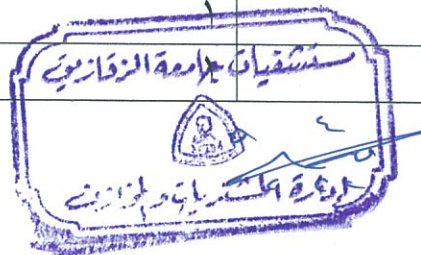 ١
مستشفيات جامعة الزقازيق
٤
إدارة المشتريات والمخازن